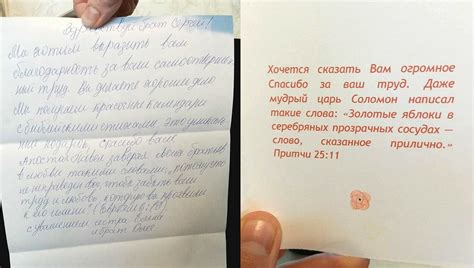 Здравствуй брат Сергей!
Мы хотим выразить вам
благодарность за ваш самоотвержен
ный труд. Вы делаете хорошее дело
Мы получаем красочные календари
с библейскими стихами. Это уникаль
ный подарок, спасибо вам.
Апостол Павел заверял своих братьев
в любви такими словами:
не неправеден Бог, чтоб забыть ваш
труд и любовь которую вы проявили
к его имени" (Евреям 6:10)
с уважением сестра Елена
и брат Олег
Хочется сказать Вам огромное
Спасибо за ваш труд. Даже
мудрый царь Соломон написал
такие слова: «Золотые яблоки в
серебряных прозрачных сосудах —
слово, сказанное прилично.»
Притчи 25:11